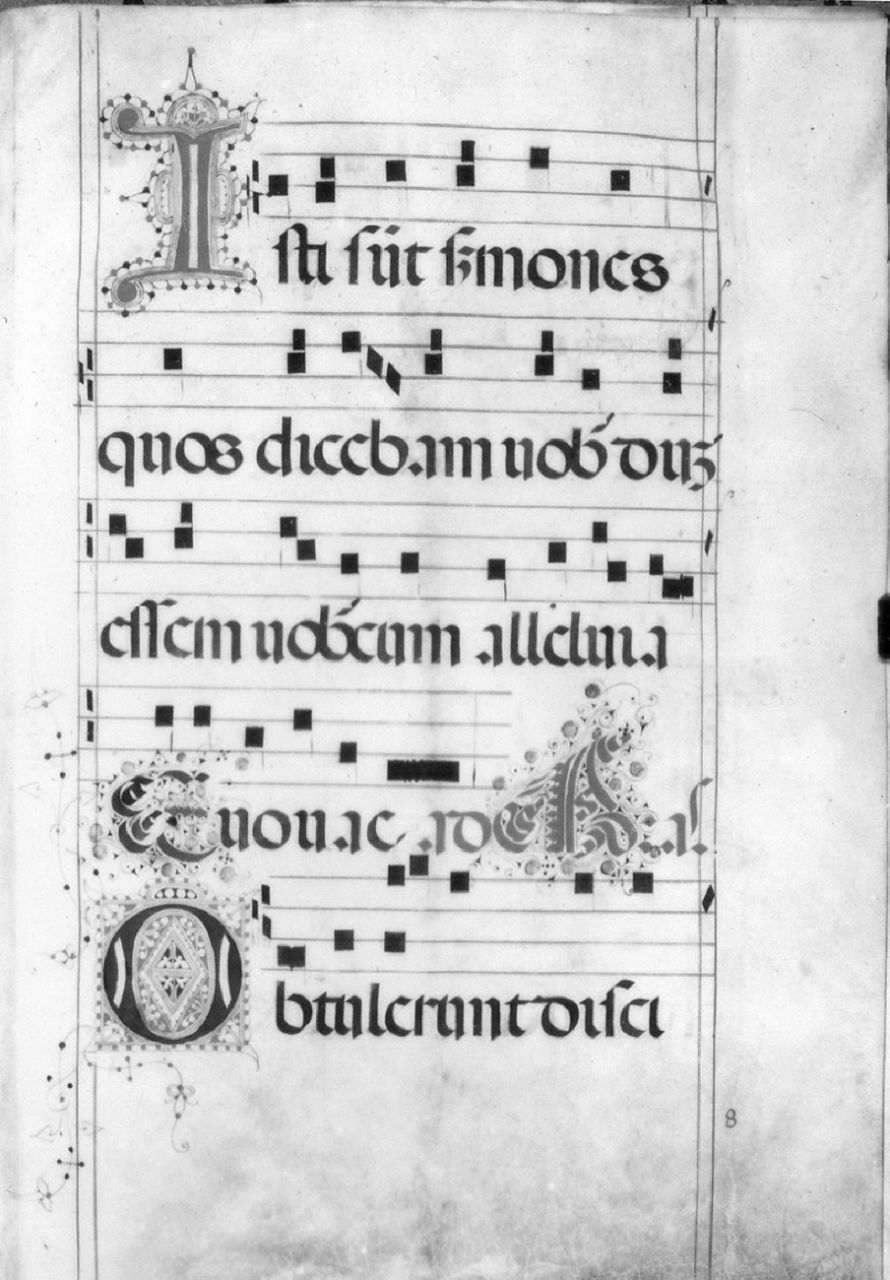 Isti sūt s̄mones
quos diceb.am uob᷒ duȝ
essem uob᷒cum .alleluia
Euouae ad
Obtulerunt disci
8